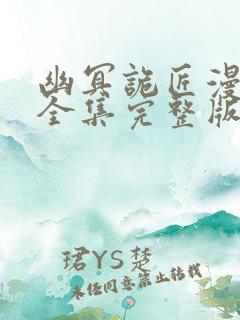 幽冥詭匠漫
全集完整版
珺YS楚
未经同意禁止转载